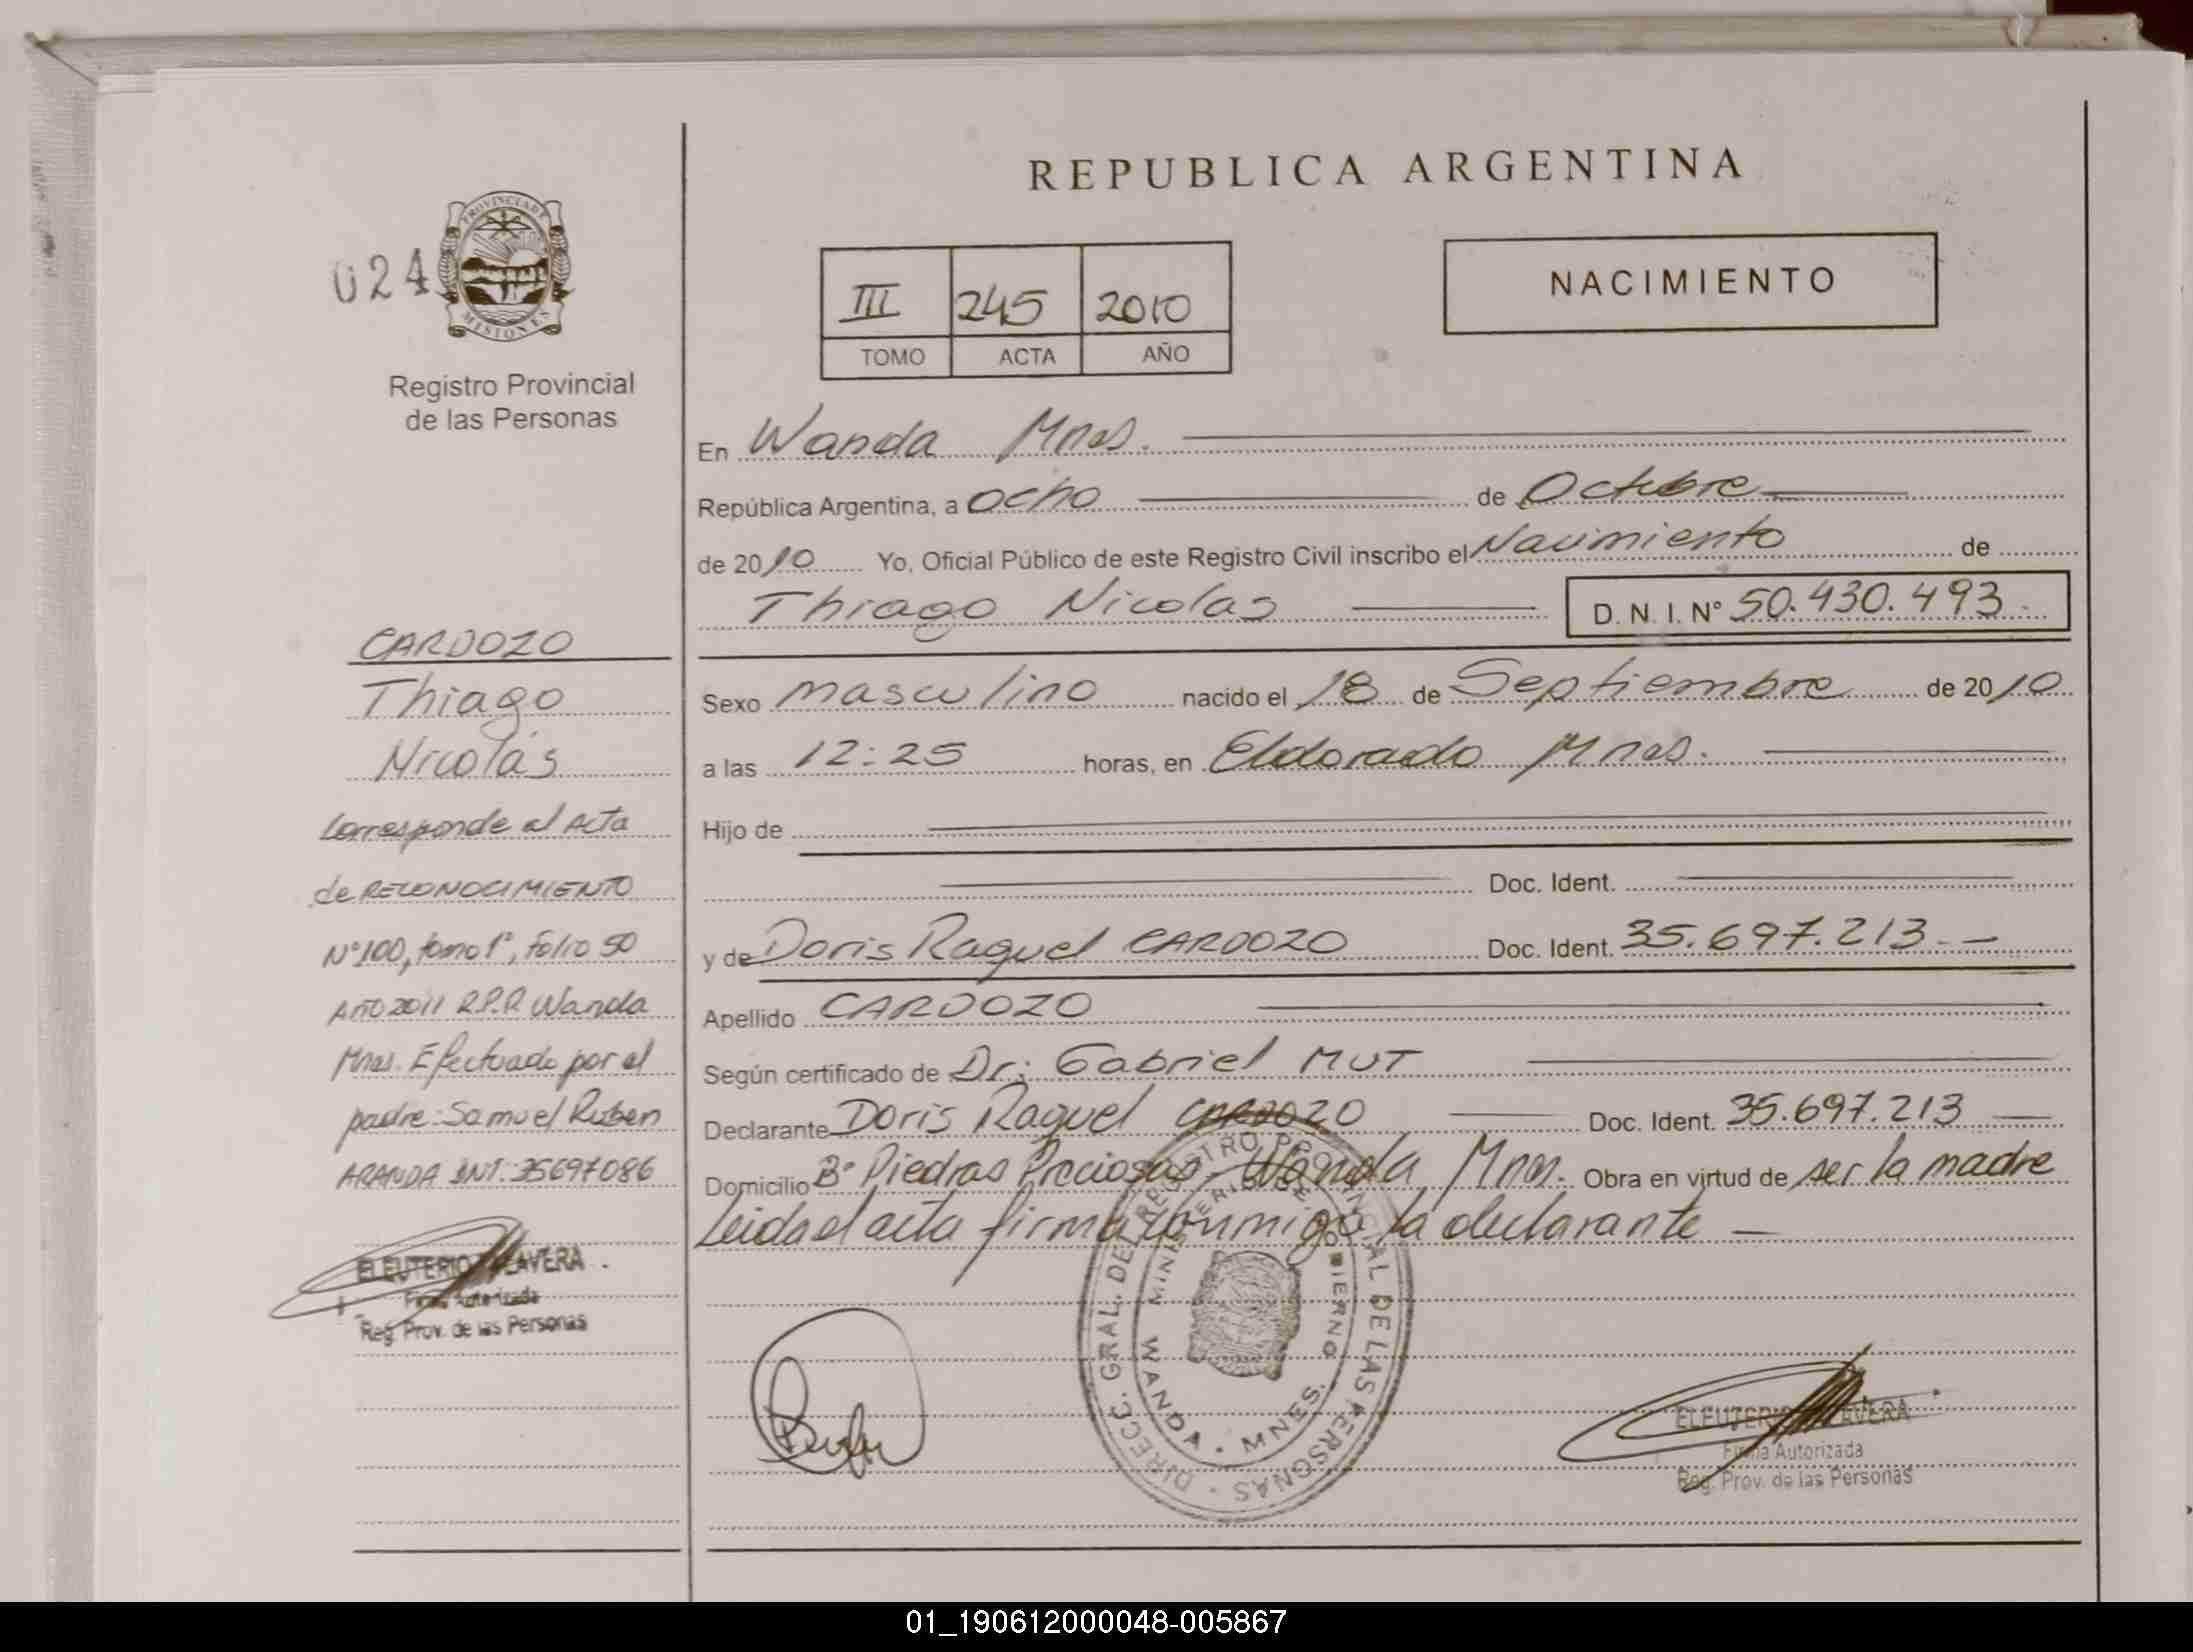 REPUBLICA ARGENTINA
024
PROVINCIA DE
MISIONES
Registro Provincial
de las Personas
III 245 2010
TOMO ACTA AÑO
NACIMIENTO
En Wanda Mnes.
República Argentina, a ocho de Octubre
de 2010 Yo, Oficial Público de este Registro Civil inscribo el Nacimiento de
Thiago Nicolas D. N. I. Nº 50.430.493
Sexo masculino nacido el 18 de Septiembre de 2010
a las 12:25 horas, en Eldorado Mnes.
Hijo de
Doc. Ident.
y de Doris Raquel CARDOZO Doc. Ident. 35.697.213
Apellido CARDOZO
Según certificado de Dr: Gabriel MUT
Declarante Doris Raquel CARDOZO Doc. Ident. 35.697.213
Domicilio Bº Piedras Preciosas, Wanda, Mnes. Obra en virtud de ser la madre
Leida el acta firma conmigo la declarante
CARDOZO
Thiago
Nicolás
Corresponde al Acta
de RECONOCIMIENTO
Nº 100, tomo 1º, Folio 50
AÑO 2011 R.P.P. Wanda
Mnes. Efectuado por el
padre: Samuel Ruben
ARANDA DNI: 35697086
ELEUTERIO AVERA
Firma Autorizada
Reg. Prov. de las Personas
DIRECC. GRAL. DEL REGISTRO PROVINCIAL DE LAS PERSONAS
MINISTERIO DE GOBIERNO
WANDA · MNES.
ELEUTERIO AVERA
Firma Autorizada
Reg. Prov. de las Personas
01_190612000048-005867